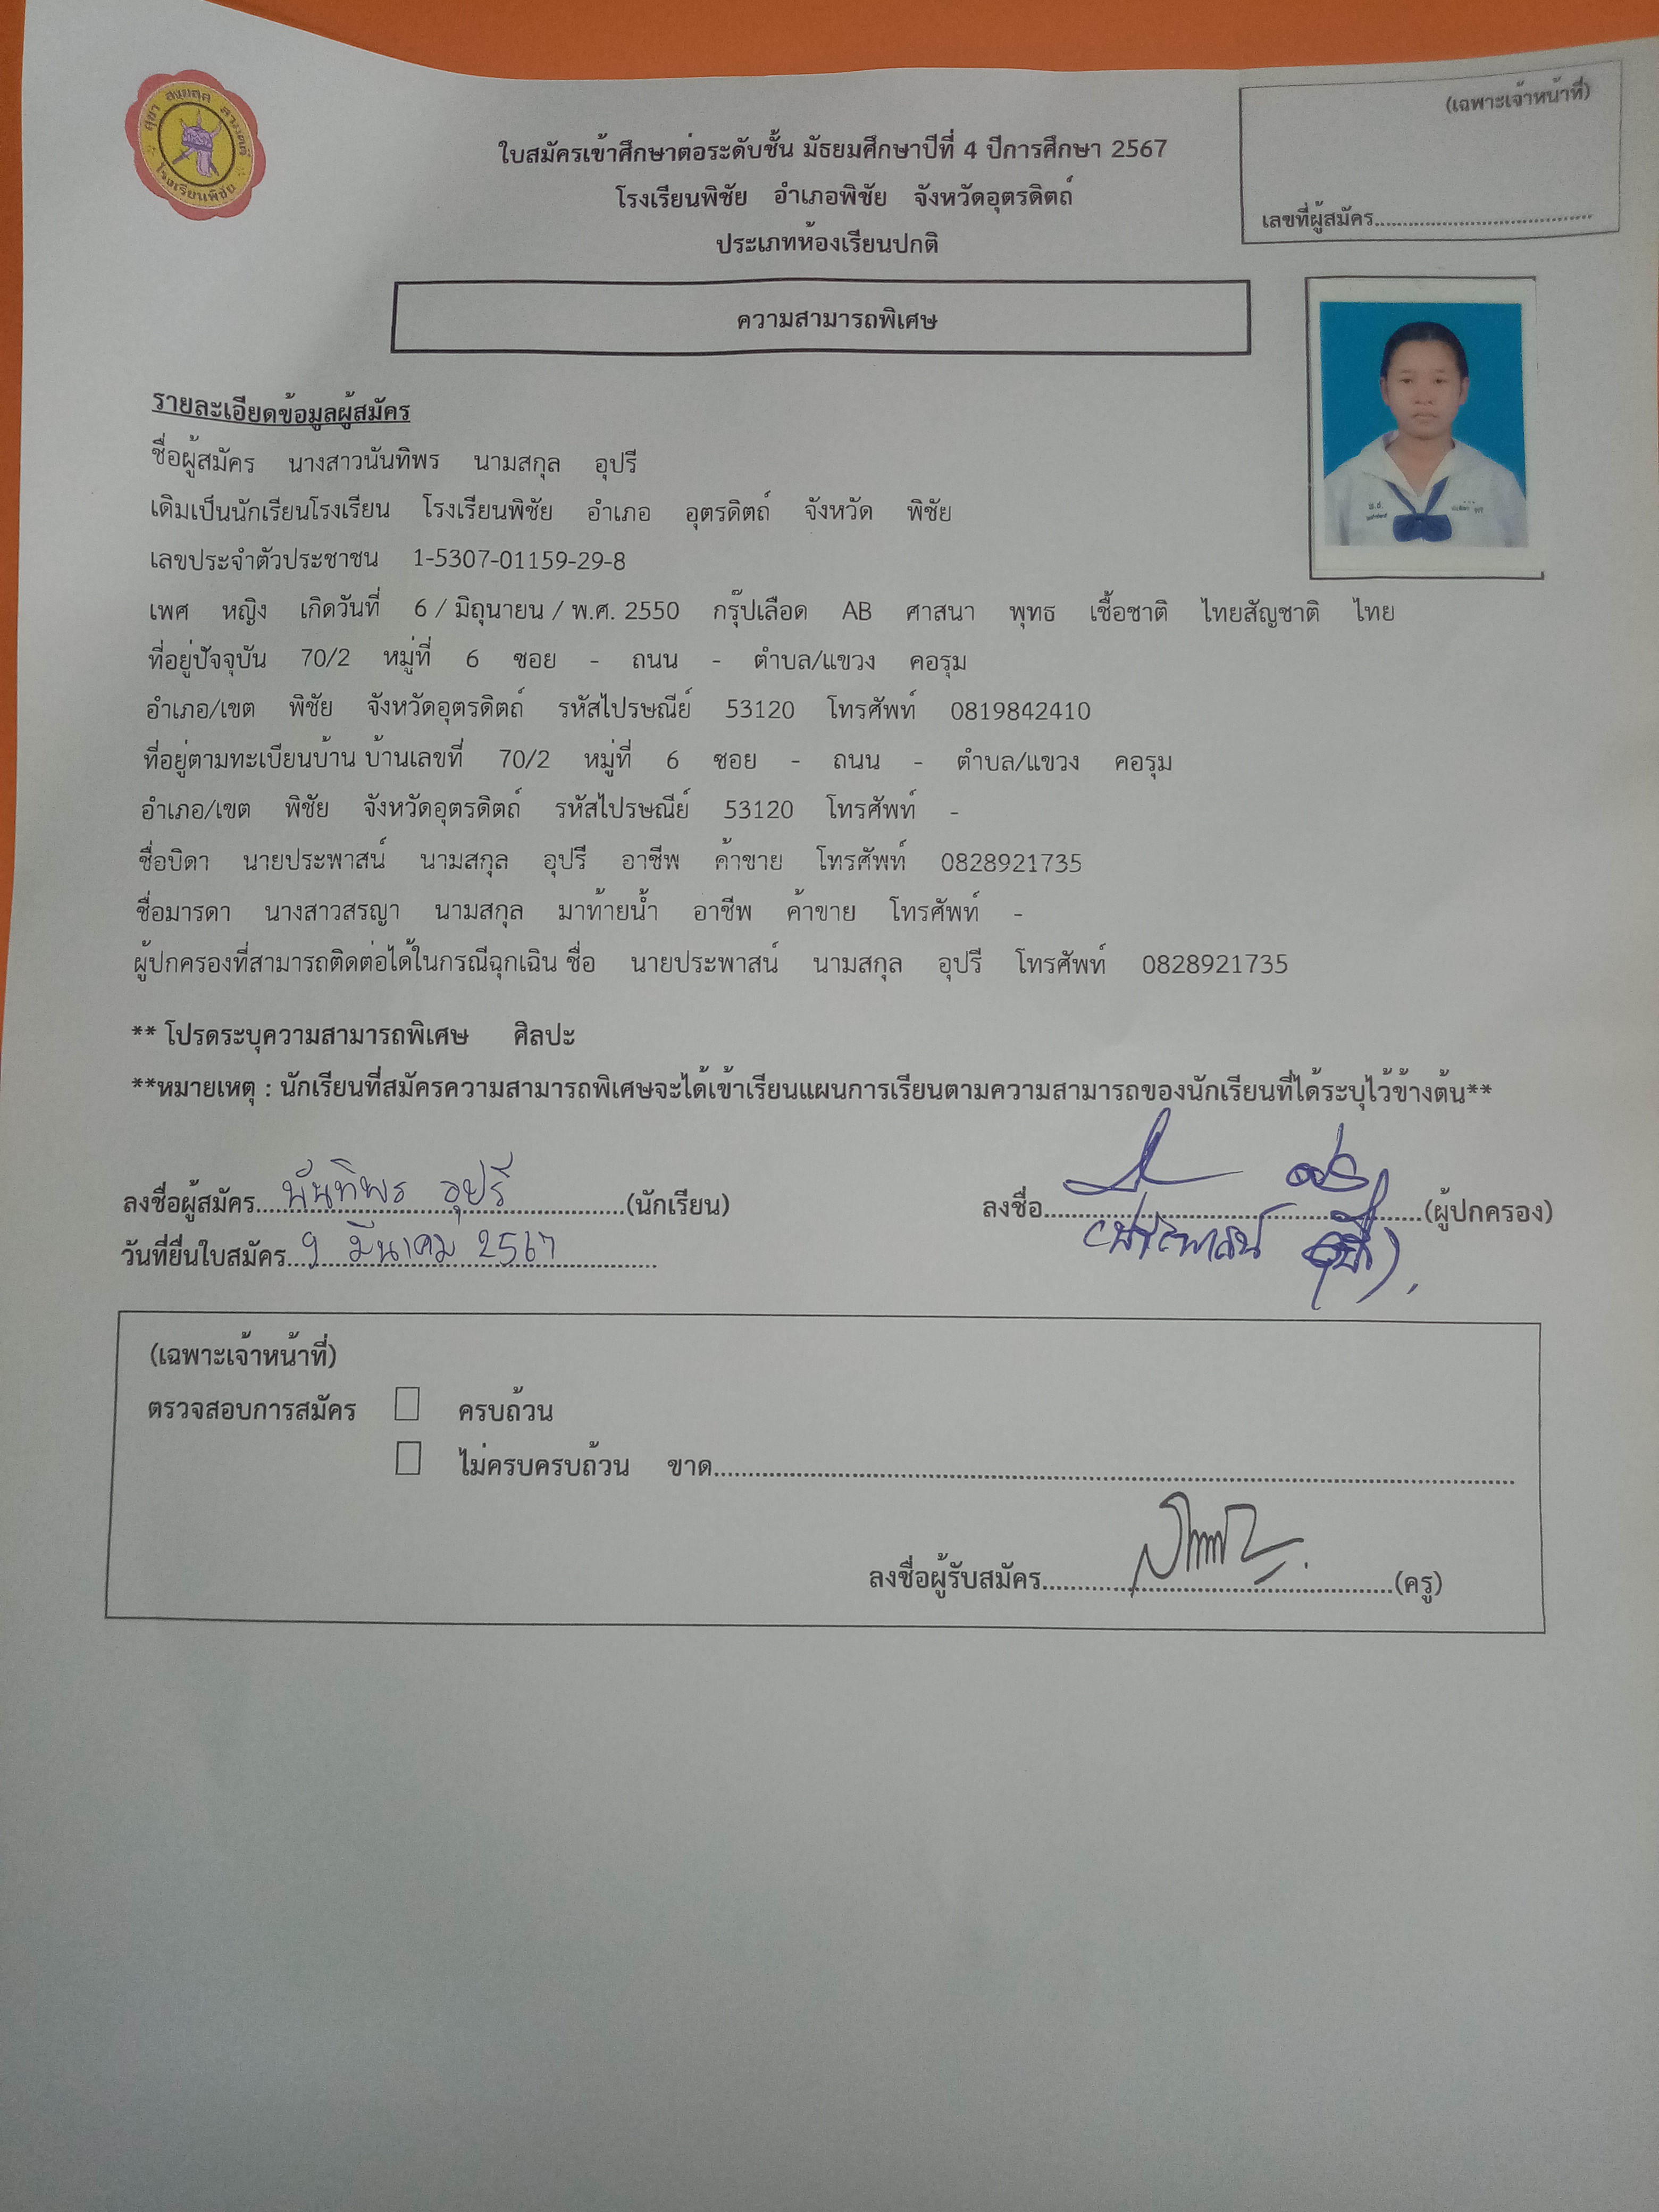 สุขา สงฆสฺส สามคฺคี
โรงเรียนพิชัย
(เฉพาะเจ้าหน้าที่)
เลขที่ผู้สมัคร
ใบสมัครเข้าศึกษาต่อระดับชั้น มัธยมศึกษาปีที่ 4 ปีการศึกษา 2567
โรงเรียนพิชัย อำเภอพิชัย จังหวัดอุตรดิตถ์
ประเภทห้องเรียนปกติ
ความสามารถพิเศษ
รายละเอียดข้อมูลผู้สมัคร
ชื่อผู้สมัคร นางสาวนันทิพร นามสกุล อุปรี
เดิมเป็นนักเรียนโรงเรียน โรงเรียนพิชัย อำเภอ อุตรดิตถ์ จังหวัด พิชัย
เลขประจำตัวประชาชน 1-5307-01159-29-8
เพศ หญิง เกิดวันที่ 6 / มิถุนายน / พ.ศ. 2550 กรุ๊ปเลือด AB ศาสนา พุทธ เชื้อชาติ ไทยสัญชาติ ไทย
ที่อยู่ปัจจุบัน 70/2 หมู่ที่ 6 ซอย - ถนน - ตำบล/แขวง คอรุม
อำเภอ/เขต พิชัย จังหวัดอุตรดิตถ์ รหัสไปรษณีย์ 53120 โทรศัพท์ 0819842410
ที่อยู่ตามทะเบียนบ้าน บ้านเลขที่ 70/2 หมู่ที่ 6 ซอย - ถนน - ตำบล/แขวง คอรุม
อำเภอ/เขต พิชัย จังหวัดอุตรดิตถ์ รหัสไปรษณีย์ 53120 โทรศัพท์ -
ชื่อบิดา นายประพาสน์ นามสกุล อุปรี อาชีพ ค้าขาย โทรศัพท์ 0828921735
ชื่อมารดา นางสาวสรญา นามสกุล มาท้ายน้ำ อาชีพ ค้าขาย โทรศัพท์ -
ผู้ปกครองที่สามารถติดต่อได้ในกรณีฉุกเฉิน ชื่อ นายประพาสน์ นามสกุล อุปรี โทรศัพท์ 0828921735
** โปรดระบุความสามารถพิเศษ ศิลปะ
**หมายเหตุ : นักเรียนที่สมัครความสามารถพิเศษจะได้เข้าเรียนแผนการเรียนตามความสามารถของนักเรียนที่ได้ระบุไว้ข้างต้น**
ลงชื่อผู้สมัคร นันทิพร อุปรี (นักเรียน) ลงชื่อ (ผู้ปกครอง)
วันที่ยื่นใบสมัคร 9 มีนาคม 2567
(เฉพาะเจ้าหน้าที่)
ตรวจสอบการสมัคร ครบถ้วน
ไม่ครบครบถ้วน ขาด
ลงชื่อผู้รับสมัคร (ครู)